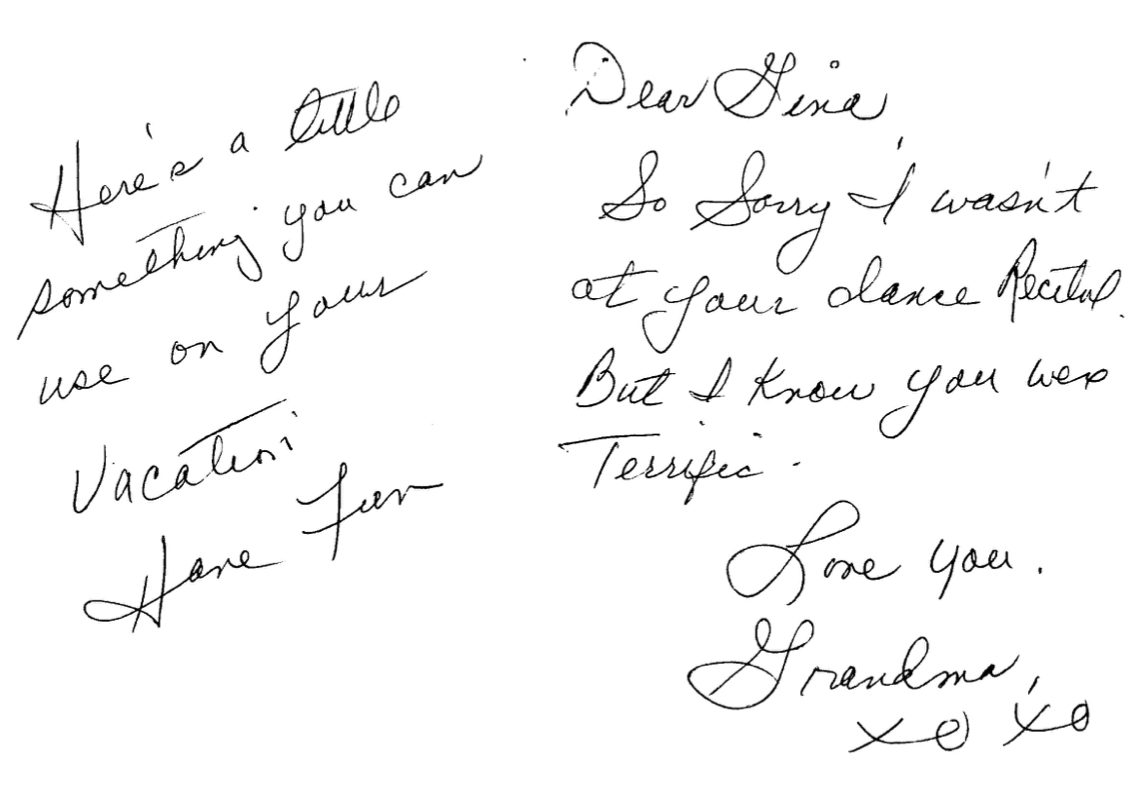 Here's a little
something you can
use on your
Vacation
Have Fun
Dear Gina,
So Sorry I wasn't
at your dance Recital.
But I Know you were
Terrific.
Love you.
Grandma,
xo xo